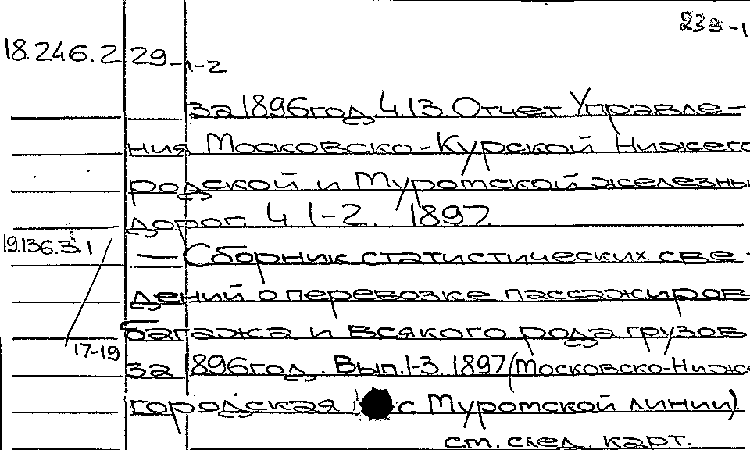 239-1
18.246.2 29-1-2
за 1896 год 4.13 Отчет Управле-
ния Московско-Курской Нижего
родской и Муромской железны
дорог. 4 1-2. 1897
19.136.3.1 — Сборник статистических све-
дений о перевозке пассажиров
багажа и всякого рода грузов
17-19 за 1896 год. Вып. 1-3. 1897 (Московско-Ниж
городская с Муромской линии)
см. след. карт.